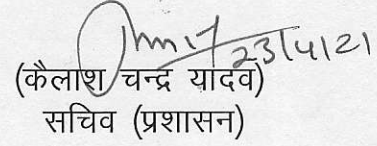 23/4/21
(कैलाश चन्द्र यादव)
सचिव (प्रशासन)